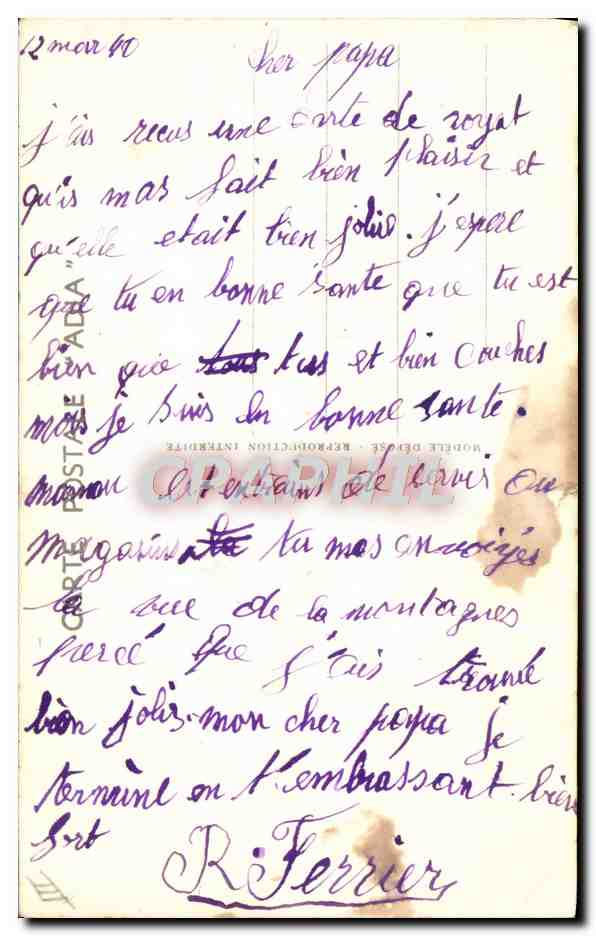 12 mar 40
Cher papa
j'ais recus une carte de royat
qu'is mas fait bien plaisir et
qu'elle etait bien jolie. j'espere
que tu en bonne sante que tu est
bien que tous tus et bien couches
mais je suis en bonne sante.
maman est entrains de servis au
magasins la tu mas envoiyés
la vue de la montagnes
percé que j'ais trouvé
bien jolis. mon cher papa je
termine en t'embrassant bien
fort
R. Ferrier
III
CARTE POSTALE "ADIA"
MODÈLE DÉPOSÉ - REPRODUCTION INTERDITE
CPAPHIL